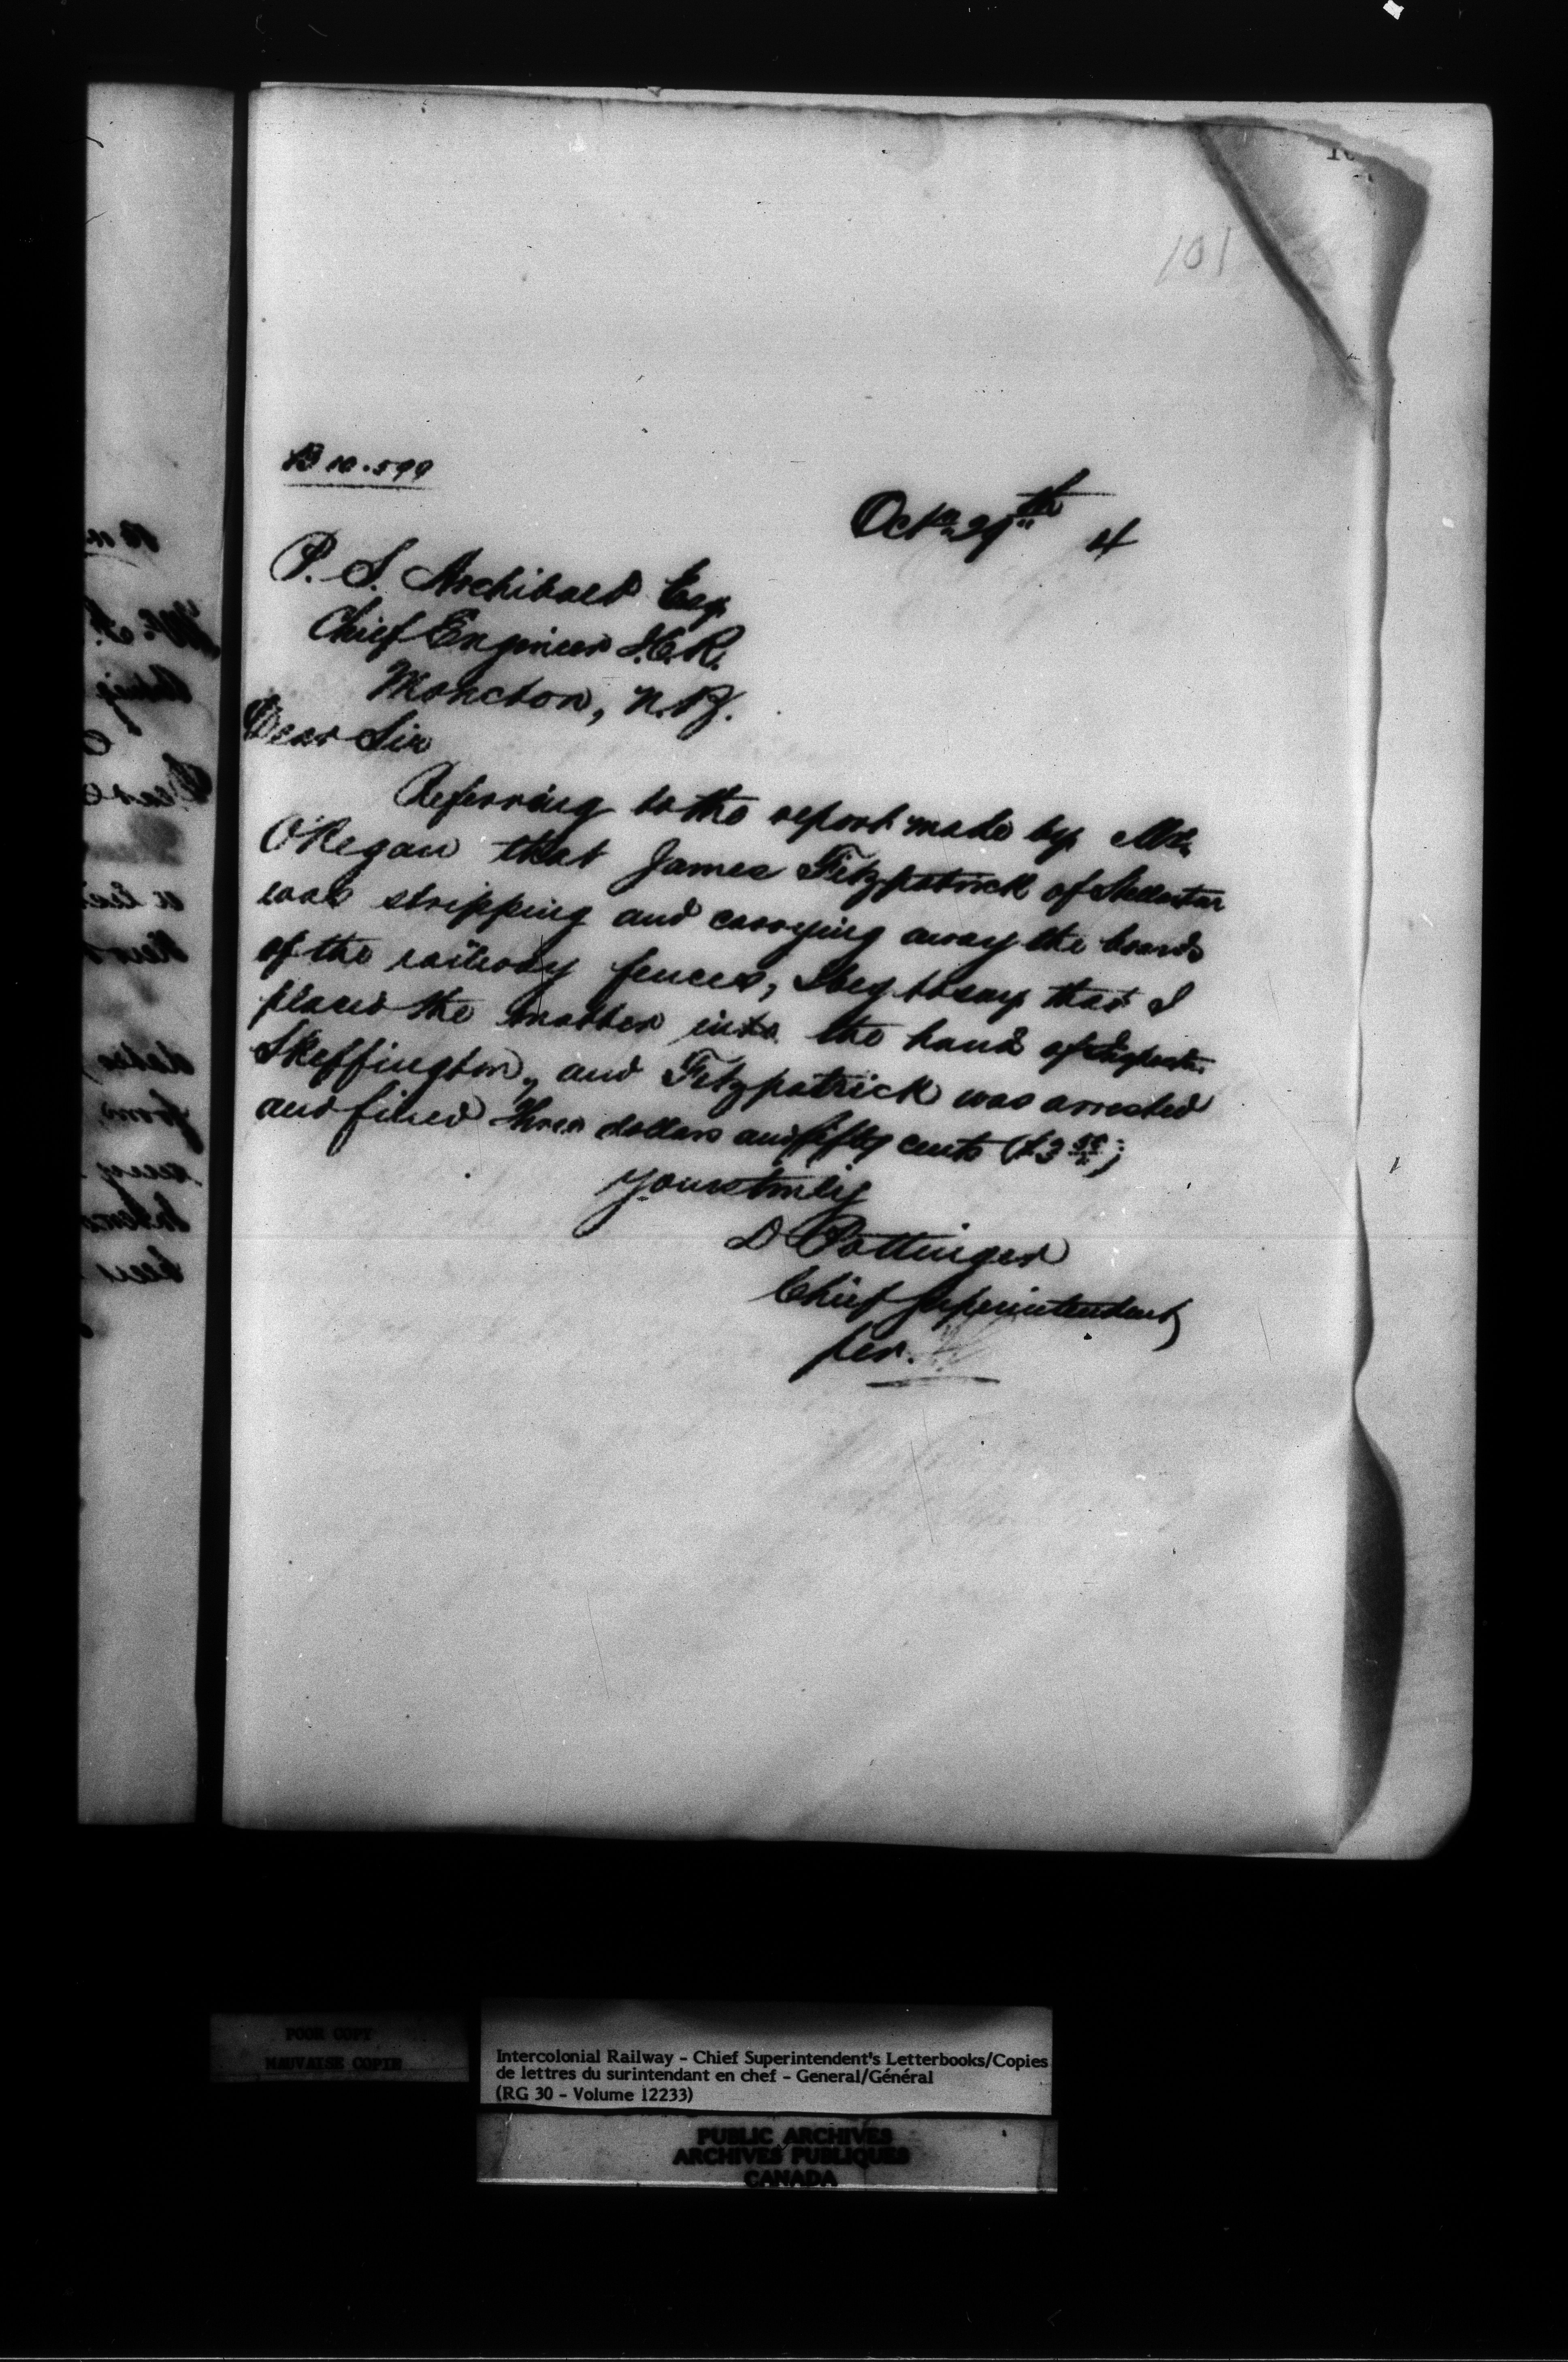 101
B 10.599
Oct. 29th 4
P. S. Archibald Esq.
Chief Engineer I.C.R.
Moncton, N.B.
Dear Sir
Referring to the report made by Mr.
O'Regan that James Fitzpatrick of Stellarton
was stripping and carrying away the boards
of the railway fences, I beg to say that I
placed the matter into the hand of Inspector
Skeffington, and Fitzpatrick was arrested
and fined three dollars and fifty cents ($3 50)
Yours truly
D Pottinger
Chief Superintendent
per.
POOR COPY
MAUVAISE COPIE
Intercolonial Railway - Chief Superintendent's Letterbooks/Copies
de lettres du surintendant en chef - General/Général
(RG 30 - Volume 12233)
PUBLIC ARCHIVES
ARCHIVES PUBLIQUES
CANADA